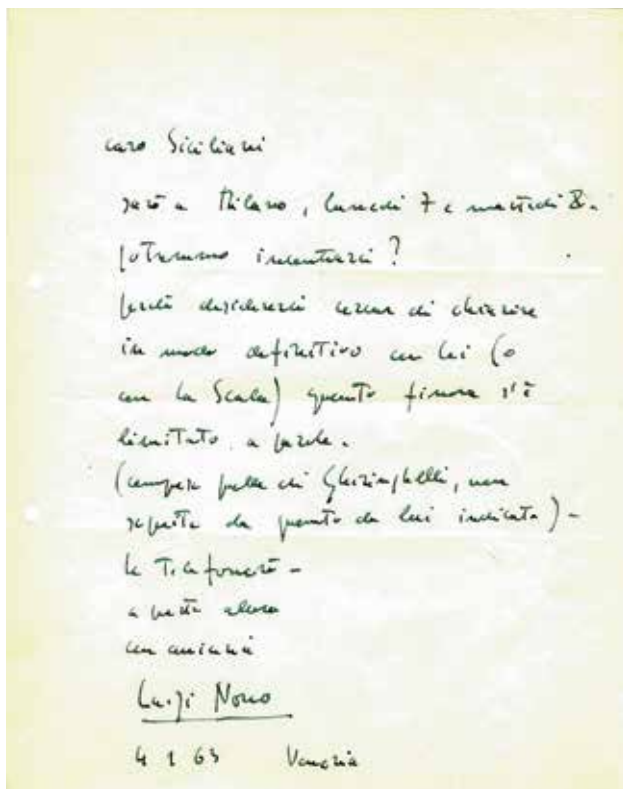 caro Siciliani
sarò a Milano, lunedì 7 e martedì 8.
potremmo incontrarci?
perché desidererei cercar di chiarire
in modo definitivo con lei (o
con la Scala) quanto finora s'è
limitato a parole.
(compresa quella di Ghiringhelli, non
seguita da quanto da lui indicato) -
le telefonerò -
a presto allora
con amicizia
Luigi Nono
4 1 63 Venezia